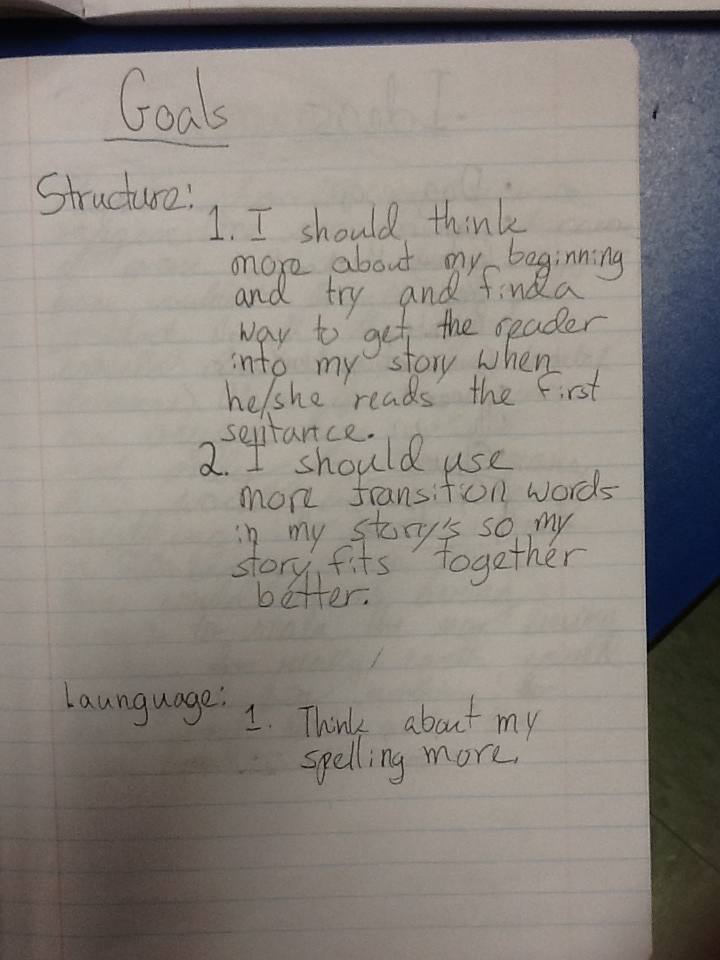 Goals
Structure:
1. I should think
more about my beginning
and try and find a
way to get the reader
into my story when
he/she reads the first
sentance.
2. I should use
more transition words
in my story's so my
story fits together
better.
Launguage:
1. Think about my
spelling more.